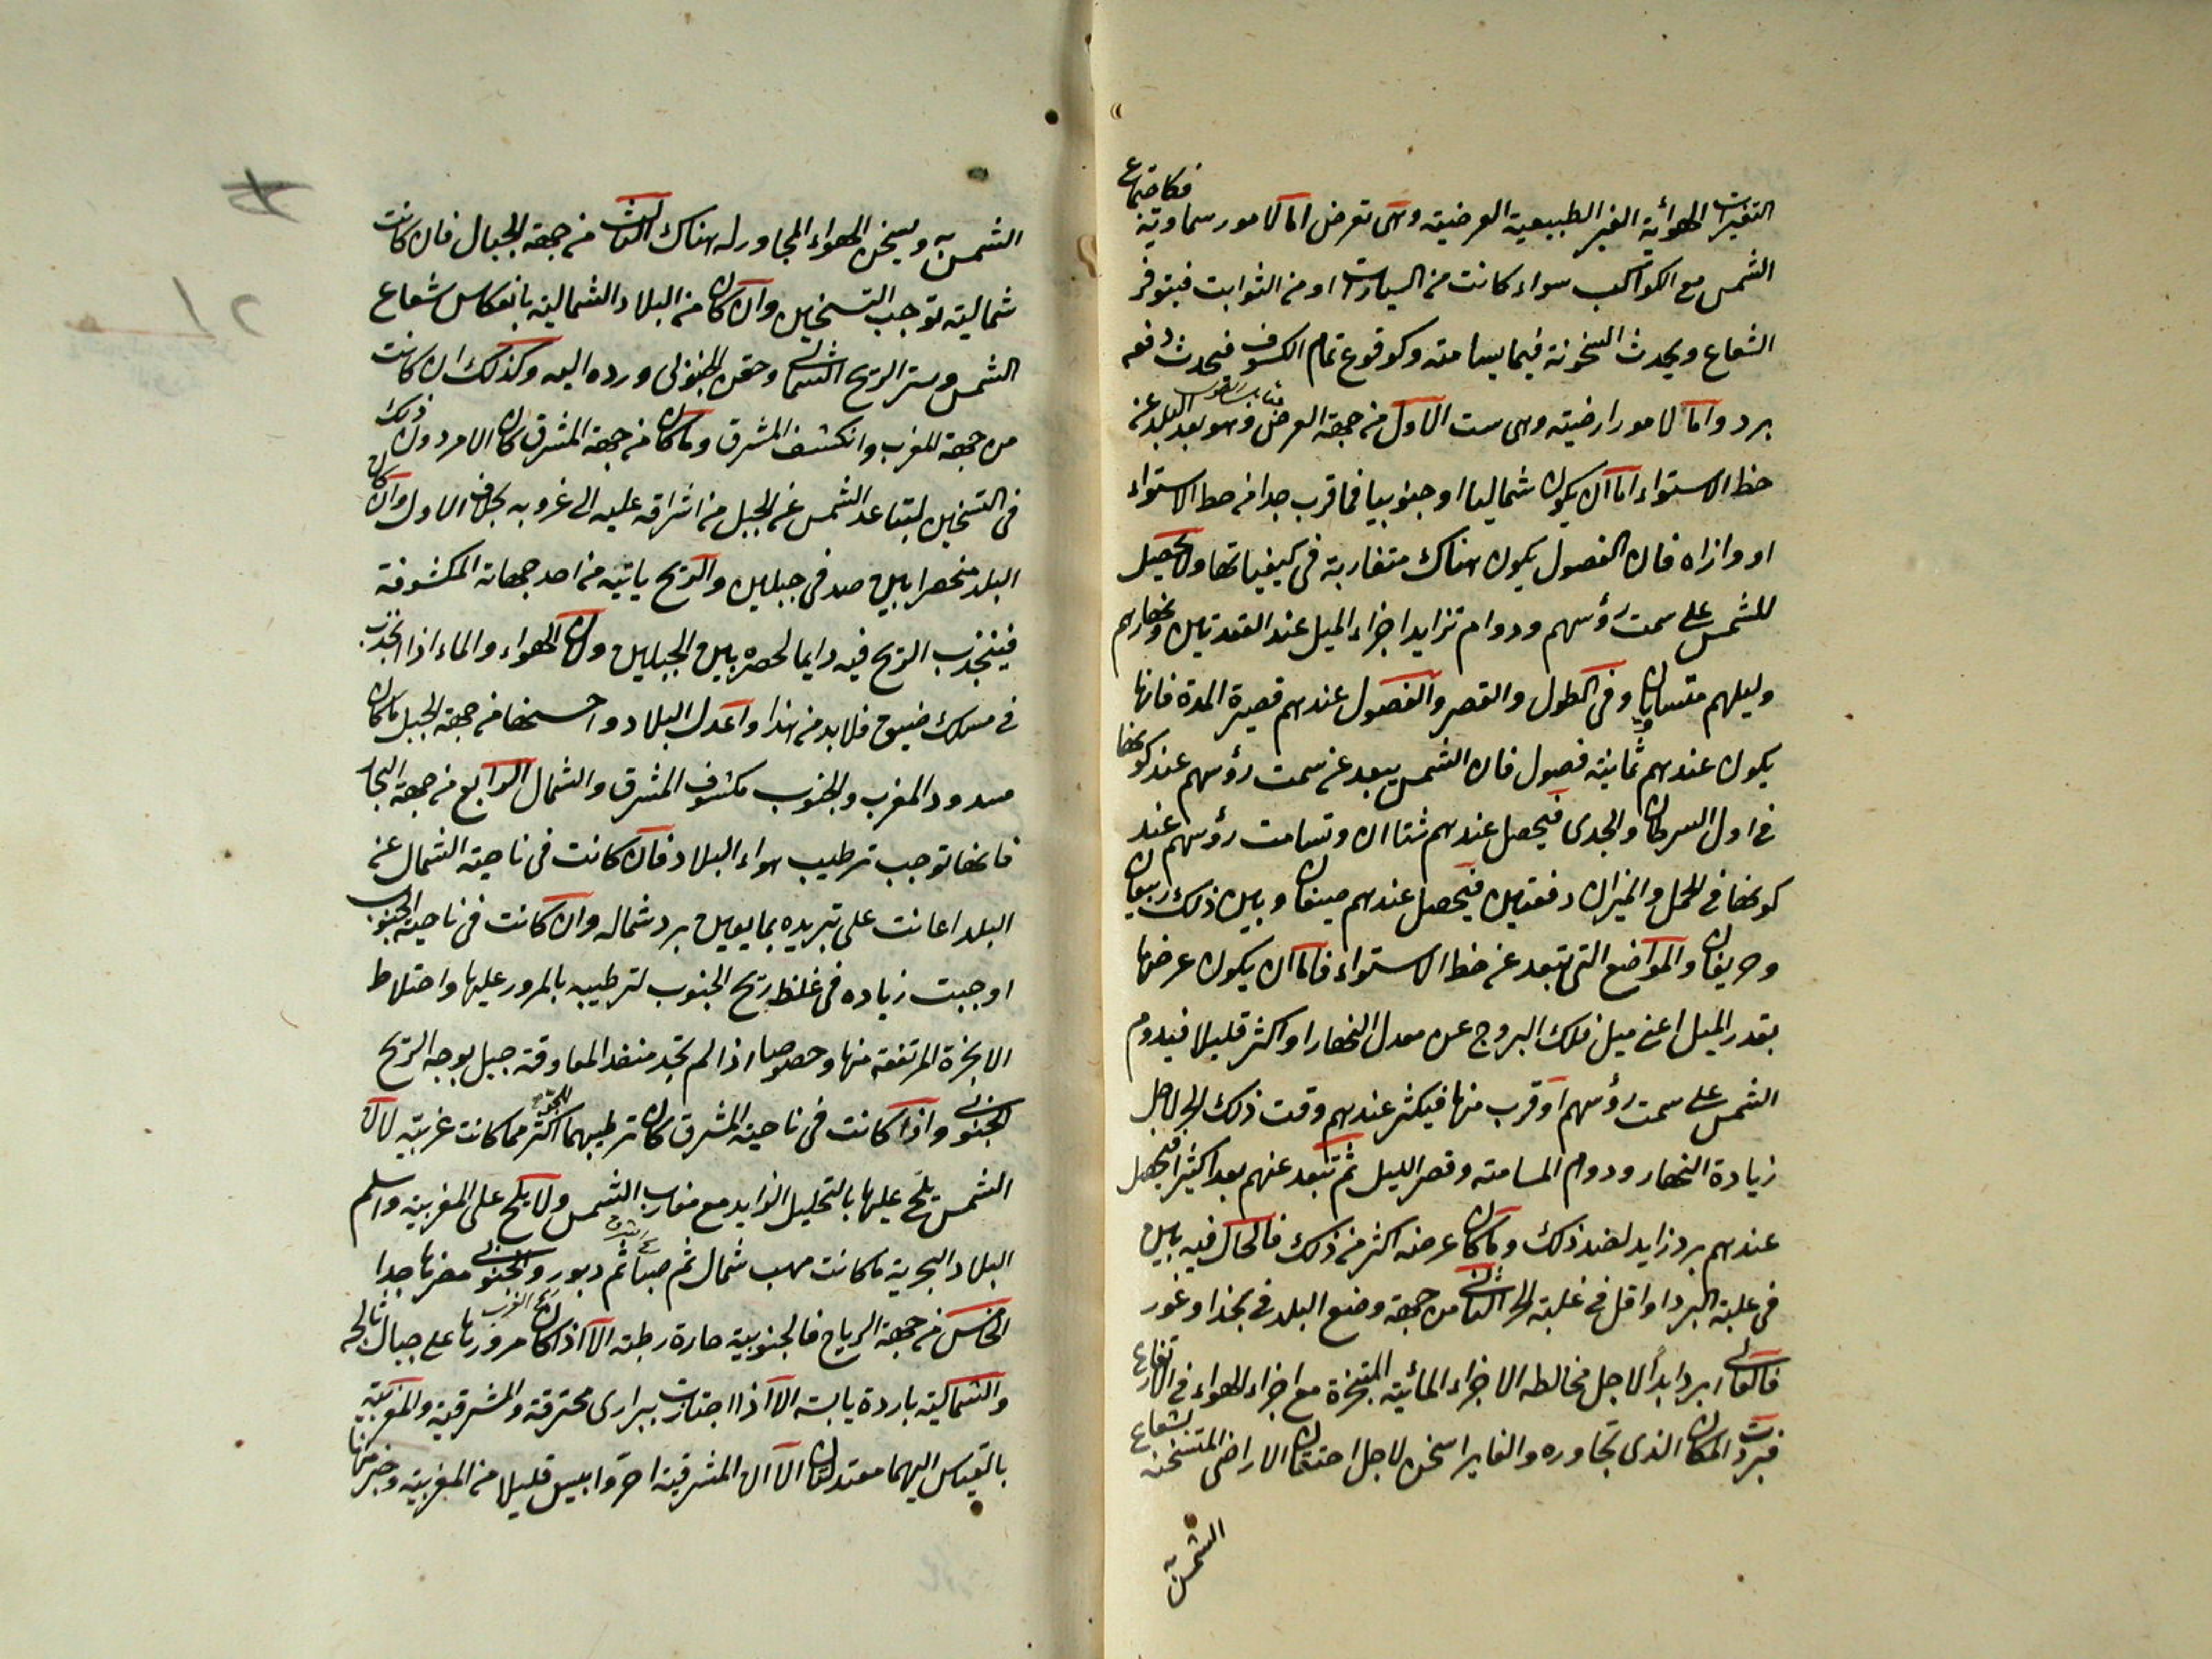 التغيرات الهوائية الغير الطبيعية العرضية وهى تعرض اما لامور سماوية فكاجتماع
الشمس مع الكواكب سواء كانت من السيارات او من الثوابت فيتوفر
الشعاع ويحدث السخونة فيما يسامته وكوقوع تمام الكسوف فيحدث دفعه
برد واما لامور ارضية وهى ست الاول من جهة العرض وهو بعد البلد عن
خط الاستواء اما ان يكون شماليا او جنوبيا فما قرب جدا من خط الاستواء
او وازاه فان الفصول يكون هناك متقاربة فى كيفياتها ولا يحصل
للشمس على سمت رؤسهم ودوام تزايد اجزاء الميل عند العقدتين ونهارهم
وليلهم متساويان فى الطول والقصر والفصول عندهم قصيرة المدة فانها
يكون عندهم ثمانية فصول فان الشمس يبعد عن سمت رؤسهم عند كونها
فى اول السرطان والجدى فيحصل عندهم شتاان وتسامت رؤسهم عند
كونها فى الحمل والميزان دفعتين فيحصل عندهم صيفان وبين ذلك ربيعان
وخريفان والمواضع التى تبعد عن خط الاستواء فاما ان يكون عرضها
بقدر الميل اعنى ميل فلك البروج عن معدل النهار او اكثر قليلا فيدوم
الشمس على سمت رؤسهم او قرب منها فيكثر عندهم وقت ذلك الحر لاجل
زيادة النهار ودوام المسامتة وقصر الليل ثم تبعد عنهم بعدا كثيرا فيحصل
عندهم برد زايد لضد ذلك وما كان عرضه اكثر من ذلك فالحال فيه بين
فى غلبة البرد او اقل فى غلبة الحر الثانى من جهة وضع البلد فى نجد او غور
فالعالى ابرد ابدا لاجل مخالطه الاجزاء المائية المتبخرة مع اجزاء الهواء فى الارتفاع
فبردت المكان الذى تجاوره والغاير اسخن لاجل احتقان الاراضى المتسخنة بشعاع
الشمس
الشمس ويسخن الهواء المجاور له هناك الثالث من جهة الجبال فان كانت
شمالية توجب التسخين وان كان من البلاد الشمالية بانعكاس شعاع
الشمس وستر الريح الشمالى وحقن الجنوبى ورده اليه وكذلك ان كانت
من جهة المغرب وانكشف المشرق وما كان من جهة المشرق كان الامر دون ذلك
فى التسخين لتباعد الشمس عن الجبل من اشراقه عليه الى غروبه بخلاف الاول وان كان
البلد منحصرا بين صدفى جبلين والريح ياتيه من احد جهاته المكشوفة
فينجذب الريح فيه دايما لحصره بين الجبلين ولان الهواء والماء اذا انجذب
فى مسلك ضيق فلابد من هذا واعدل البلاد واحسنها من جهة الجبل ما كان
مسدود المغرب والجنوب مكشوف المشرق والشمال الرابع من جهة البحار
فانها توجب ترطيب هواء البلاد فان كانت فى ناحية الشمال عن
البلد اعانت على تبريده بما يعين برد شماله وان كانت فى ناحية الجنوب
اوجبت زياده فى غلظ ريح الجنوب لترطيبه بالمرور عليها واختلاط
الابخرة المرتفعة منها وخصوصا اذا لم تجد منفذ المعاوقة جبل بوجه الريح
الجنوبى واذا كانت فى ناحية المشرق كان ترطيبهما اكثر مما كانت غربية لان
الشمس تلح عليها بالتحليل الزايد مع مقارب الشمس ولا يلح على المغربية واسلم
البلاد البحرية ما كانت مهب شمال ثم صبا ثم دبور والجنوبى مضرها جدا
الخامس من جهة الرياح فالجنوبية حارة رطبة الا اذا كان مرورها على جبال ثالجه
والشمالية باردة يابسه الا اذا اجتازت ببرارى محترقة والمشرقية والمغربية
بالقياس اليهما معتدلتان الا ان المشرقية احر وايبس قليلا من المغربية وخير منها